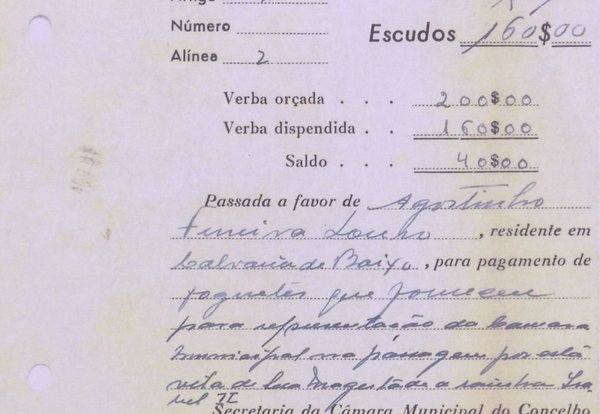 Número
Alínea 2
Escudos 160$00
Verba orçada . . . 200$00
Verba dispendida . . 160$00
Saldo . . . 40$00
Passada a favor de Agostinho
Ferreira , residente em
Calvaria de Baixo, para pagamento de
foguetes que forneceu
para representação da Camara
Municipal na passagem por esta
vila de Sua Magestade a rainha Isa
bel II
Secretaria da Câmara Municipal do Concelho